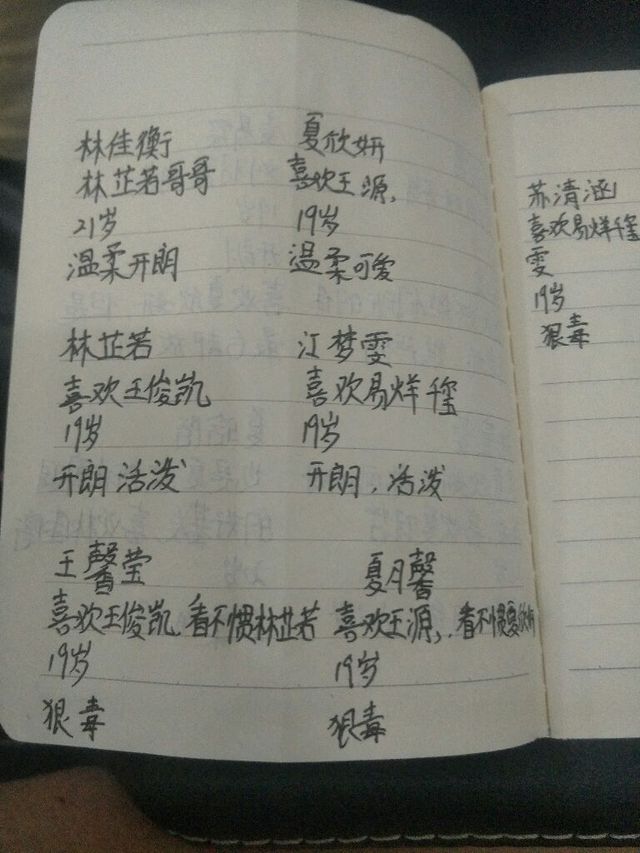 林佳衡
林芷若哥哥
21岁
温柔开朗
夏欣妍
喜欢王源,
19岁
温柔可爱
林芷若
喜欢王俊凯
19岁
开朗活泼
江梦雯
喜欢易烊千玺
19岁
开朗,活泼
王馨莹
喜欢王俊凯,看不惯林芷若
19岁
狠毒
夏月馨
喜欢王源,,看不惯夏欣妍
19岁
狠毒
苏清涵
喜欢易烊千玺
雯
19岁
狠毒